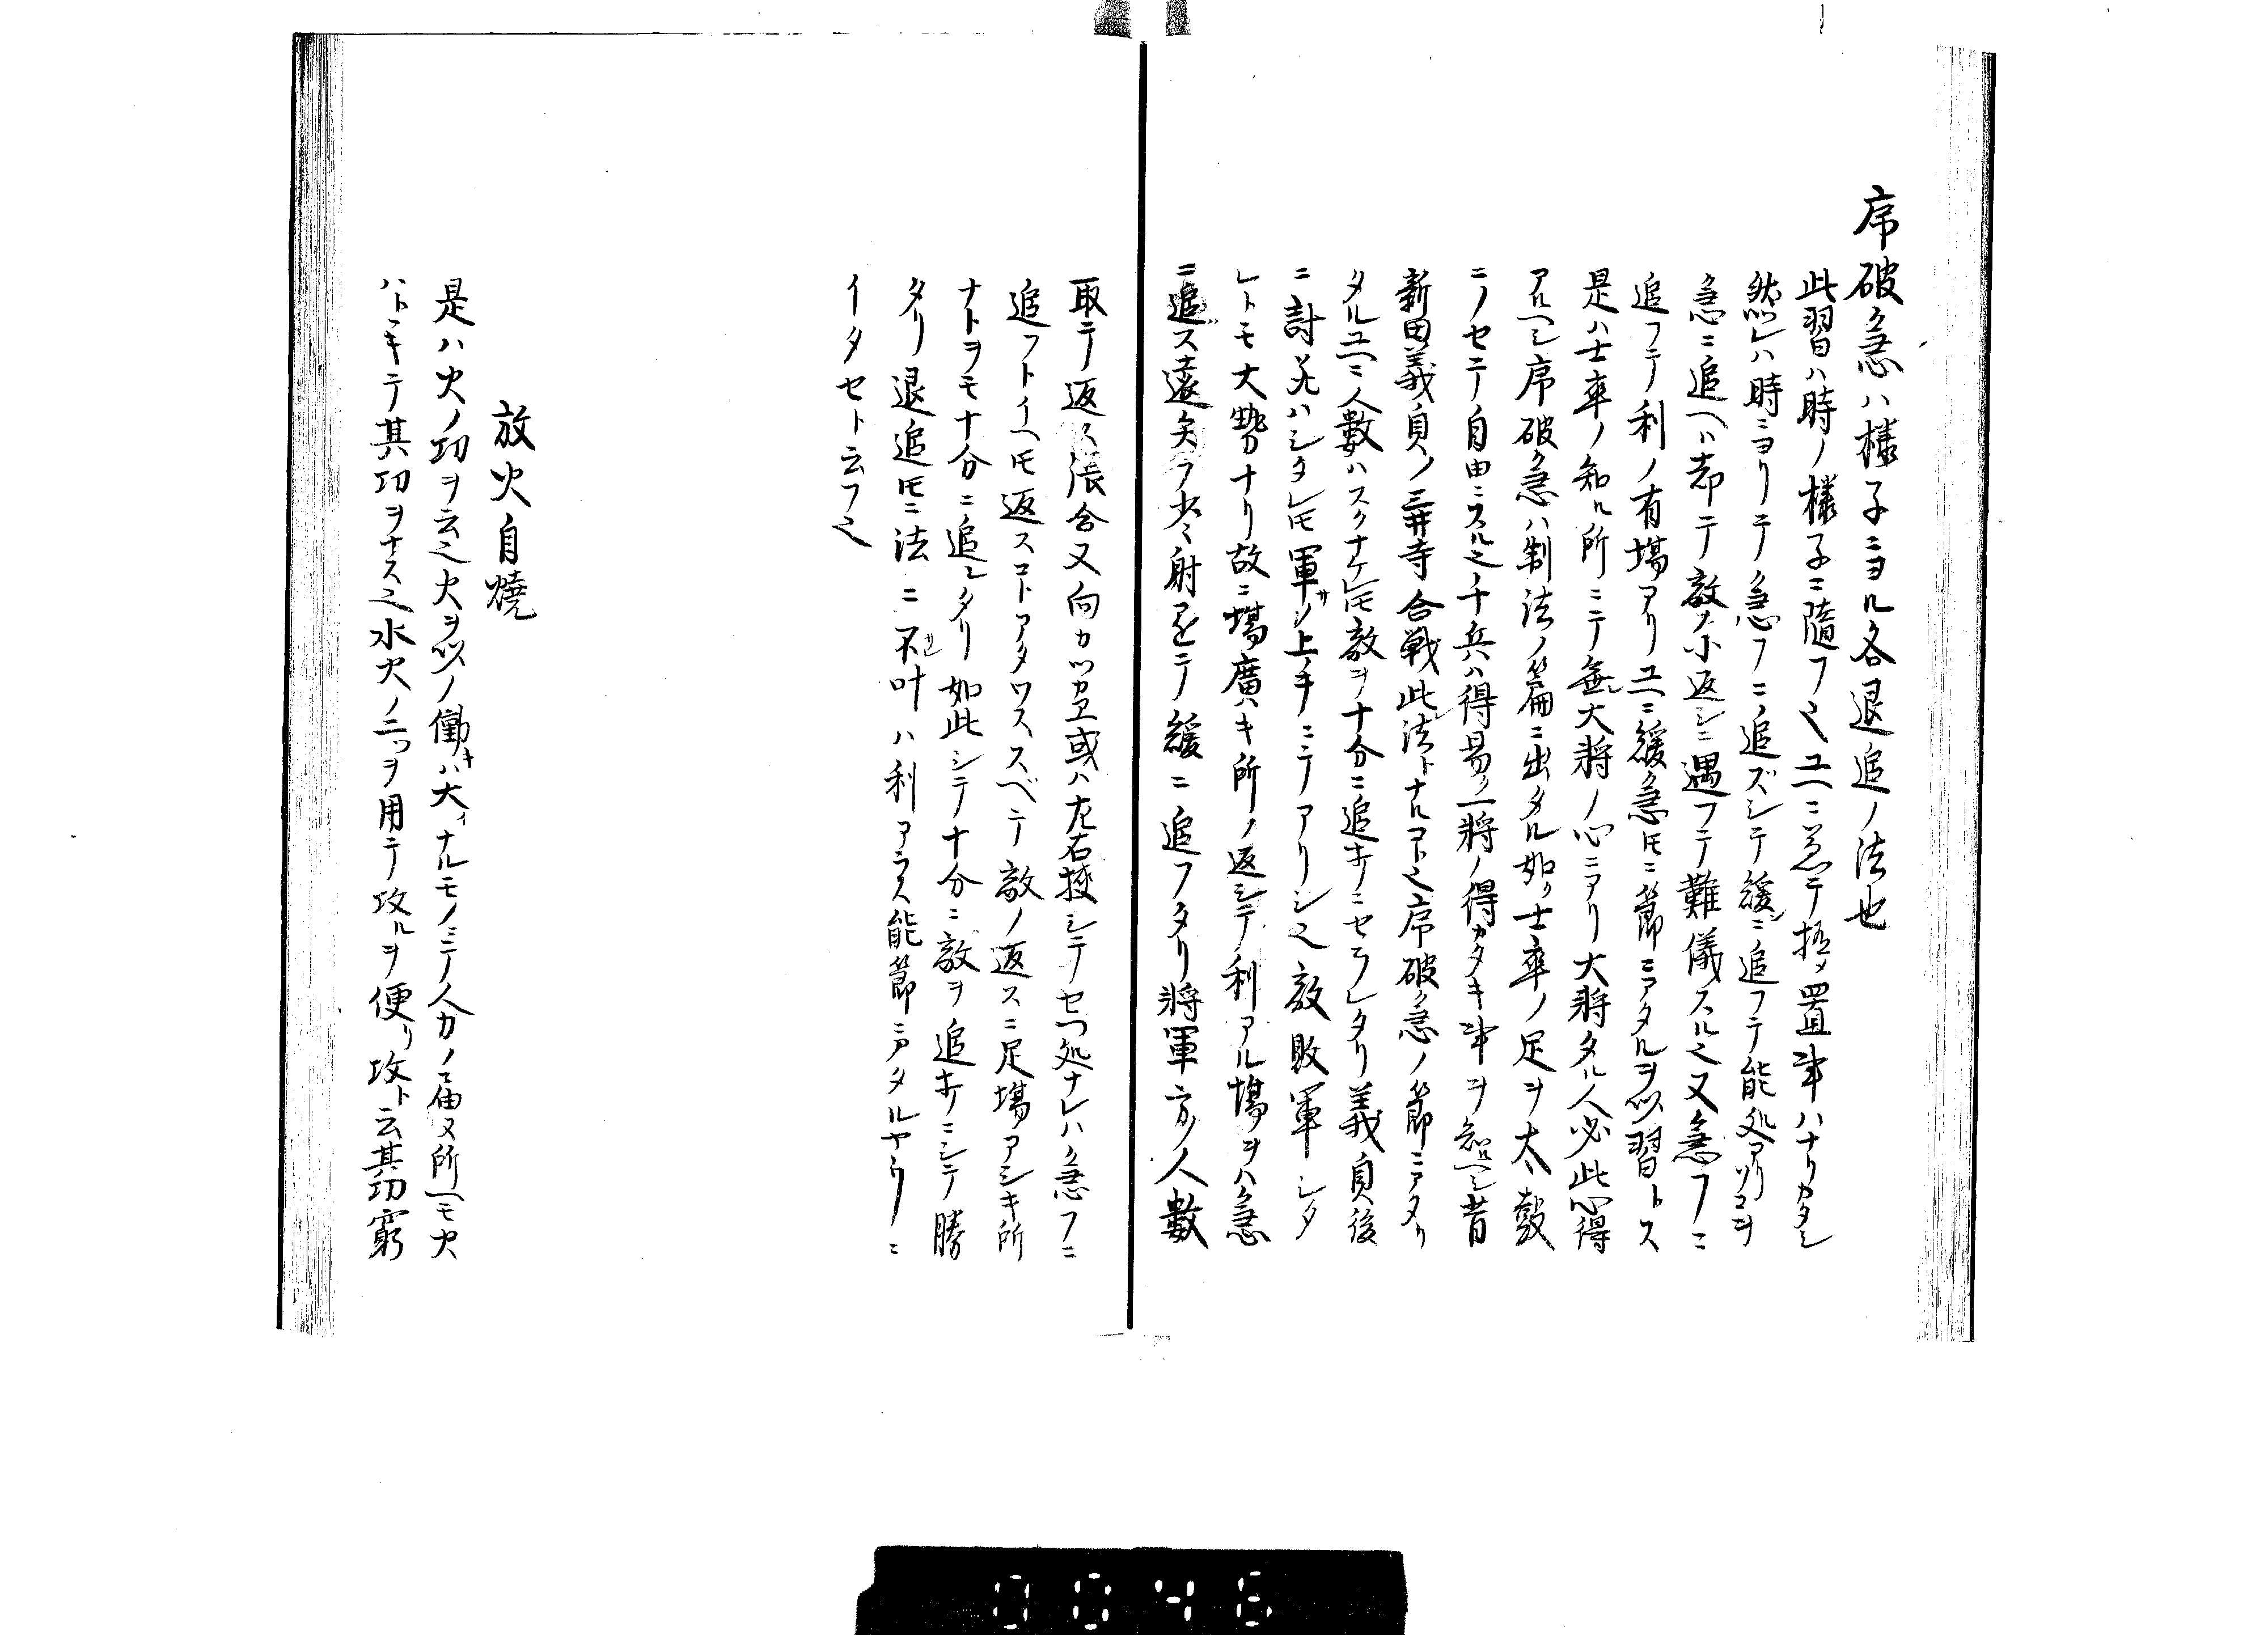 序破急ハ様子ニヨル各退追ノ法也
此習ハ時ノ様子ニ随フ之ユヘニ兼テ極メ置事ハナリカタシ
然レハ時ニヨリテ急フニ追ズシテ緩ニ追フテ能処アリソコヲ
急ニ追ヘハ却テ敵ナト返シニ遇フテ難儀スル之又急フニ
追フテ利ノ有場アリユヘニ緩急トモニ節ニアタルヲ以習トス
是ハ士卒ノ知ル所ニテ無シ大将ノ心ニアリ大将タル人必此心得
アルヘシ序破急ハ制法ノ篇ニ出タル如ク士卒ノ足ヲ太鼓
ニノセテ自由ニスル之千兵ハ得易ク一将ノ得カタキ事ヲ知ヘシ昔
新田義貞ノ三井寺合戦此法トナルコト之序破急ノ節ニアタリ
タルユヘニ人数ハスクナケレトモ敵ヲ十分ニ追キニセラレタリ義貞後
ニ討死ハシタレトモ軍サノ上手ニテアリシ之敵敗軍シタ
レトモ大勢ナリ故ニ場廣キ所ノ返シテ利アル場ヲハ急
ニ追ス遠矢ヲ少々射させテ緩ニ追フタリ将軍方ノ人数
取テ返ス張合又向カツカヱ或ハ左右挾シテセハ処ナレハ急フニ
追フトイヘトモ返スコトアタワススベテ敵ノ返スニ足場アシキ所
ナトヲモ十分ニ追レタリ如此シテ十分ニ敵ヲ追キニシテ勝
タリ退追トモニ法ニ不叶ハ利アラス能節ニアタルヤウニ
イタセト云フ之
放火自焼
是ハ火ノ功ヲ云之火ヲ以ノ働キハ大イナルモノニテ人力ノ届ヌ所ヘモ火
ハトヽキテ其功ヲナス之水火ノ二ツヲ用テ攻ルヲ便リ攻ト云其功窮
0048